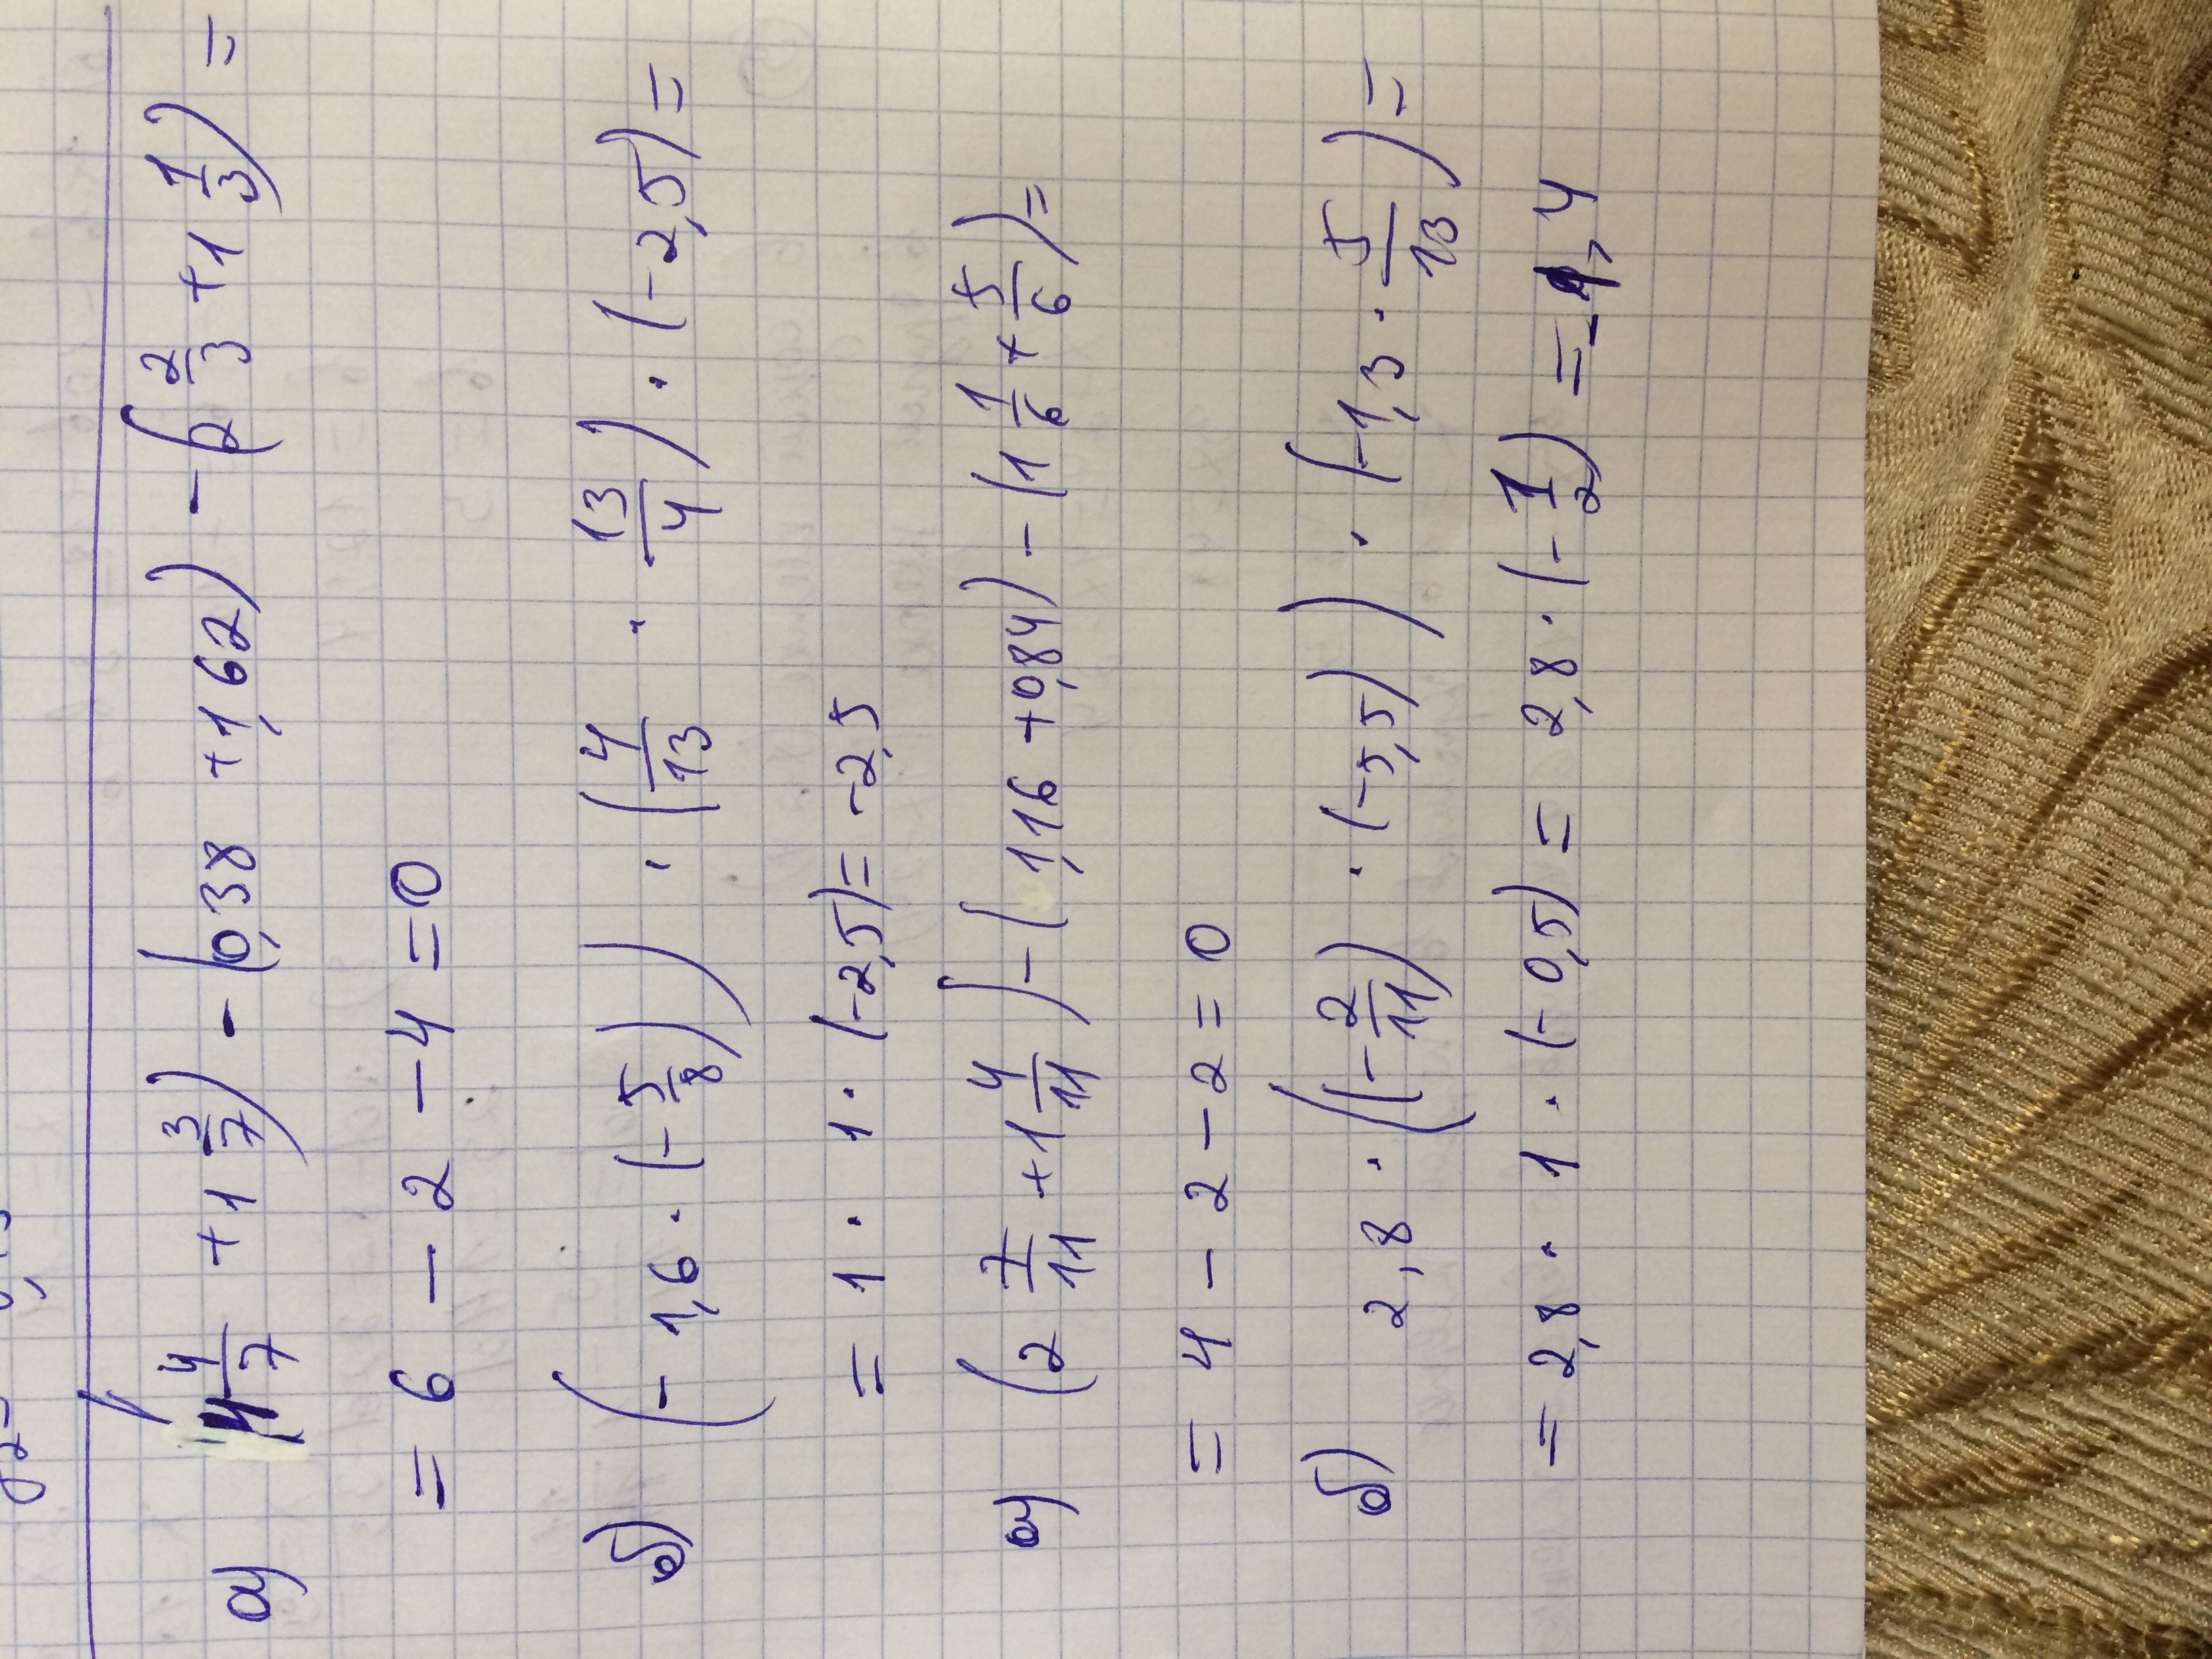 а) (4 4/7 + 1 3/7) - (0,38 + 1,62) - (2 2/3 + 1 1/3) =
= 6 - 2 - 4 = 0
б) (- 1,6 · (- 5/8)) · (4/13 · 13/4) · (-2,5) =
= 1 · 1 · (-2,5) = -2,5
а) (2 7/11 + 1 4/11) - (1,16 + 0,84) - (1 1/6 + 5/6) =
= 4 - 2 - 2 = 0
б) 2,8 · ((- 2/11) · (-5,5)) · (-1,3 · 5/13) =
= 2,8 · 1 · (- 0,5) = 2,8 · (- 1/2) = -1,4